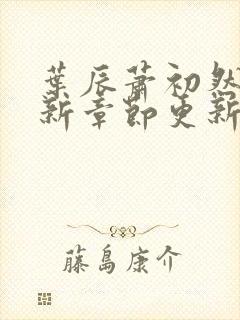 葉辰蕭初然
新章節更新
藤島康介